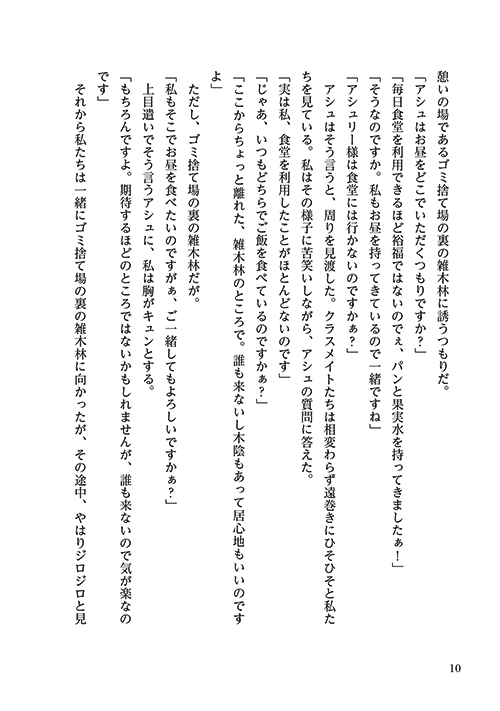 憩いの場であるゴミ捨て場の裏の雑木林に誘うつもりだ。
「アシュはお昼をどこでいただくつもりですか？」
「毎日食堂を利用できるほど裕福ではないのでぇ、パンと果実水を持ってきましたぁ！」
「そうなのですか。私もお昼を持ってきているので一緒ですね」
「アシュリー様は食堂には行かないのですかぁ？」
アシュはそう言うと、周りを見渡した。クラスメイトたちは相変わらず遠巻きにひそひそと私た
ちを見ている。私はその様子に苦笑いしながら、アシュの質問に答えた。
「実は私、食堂を利用したことがほとんどないのです」
「じゃあ、いつもどちらでご飯を食べているのですかぁ？」
「ここからちょっと離れた、雑木林のところで。誰も来ないし木陰もあって居心地もいいのです
よ」
ただし、ゴミ捨て場の裏の雑木林だが。
「私もそこでお昼を食べたいのですがぁ、ご一緒してもよろしいですかぁ？」
上目遣いでそう言うアシュに、私は胸がキュンとする。
「もちろんですよ。期待するほどのところではないかもしれませんが、誰も来ないので気が楽なの
です」
それから私たちは一緒にゴミ捨て場の裏の雑木林に向かったが、その途中、やはりジロジロと見
10